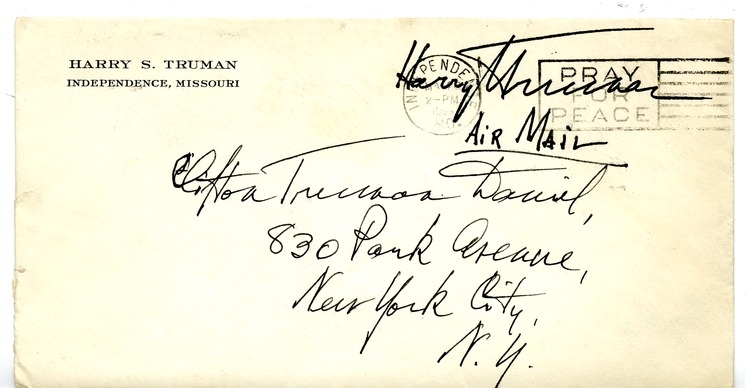 HARRY S. TRUMAN
INDEPENDENCE, MISSOURI
Harry Truman
INDEPENDEN
2-PM
PRAY
FOR
PEACE
AIR MAIL
Clifton Truman Daniel,
830 Park Avenue,
New York City,
N.Y.